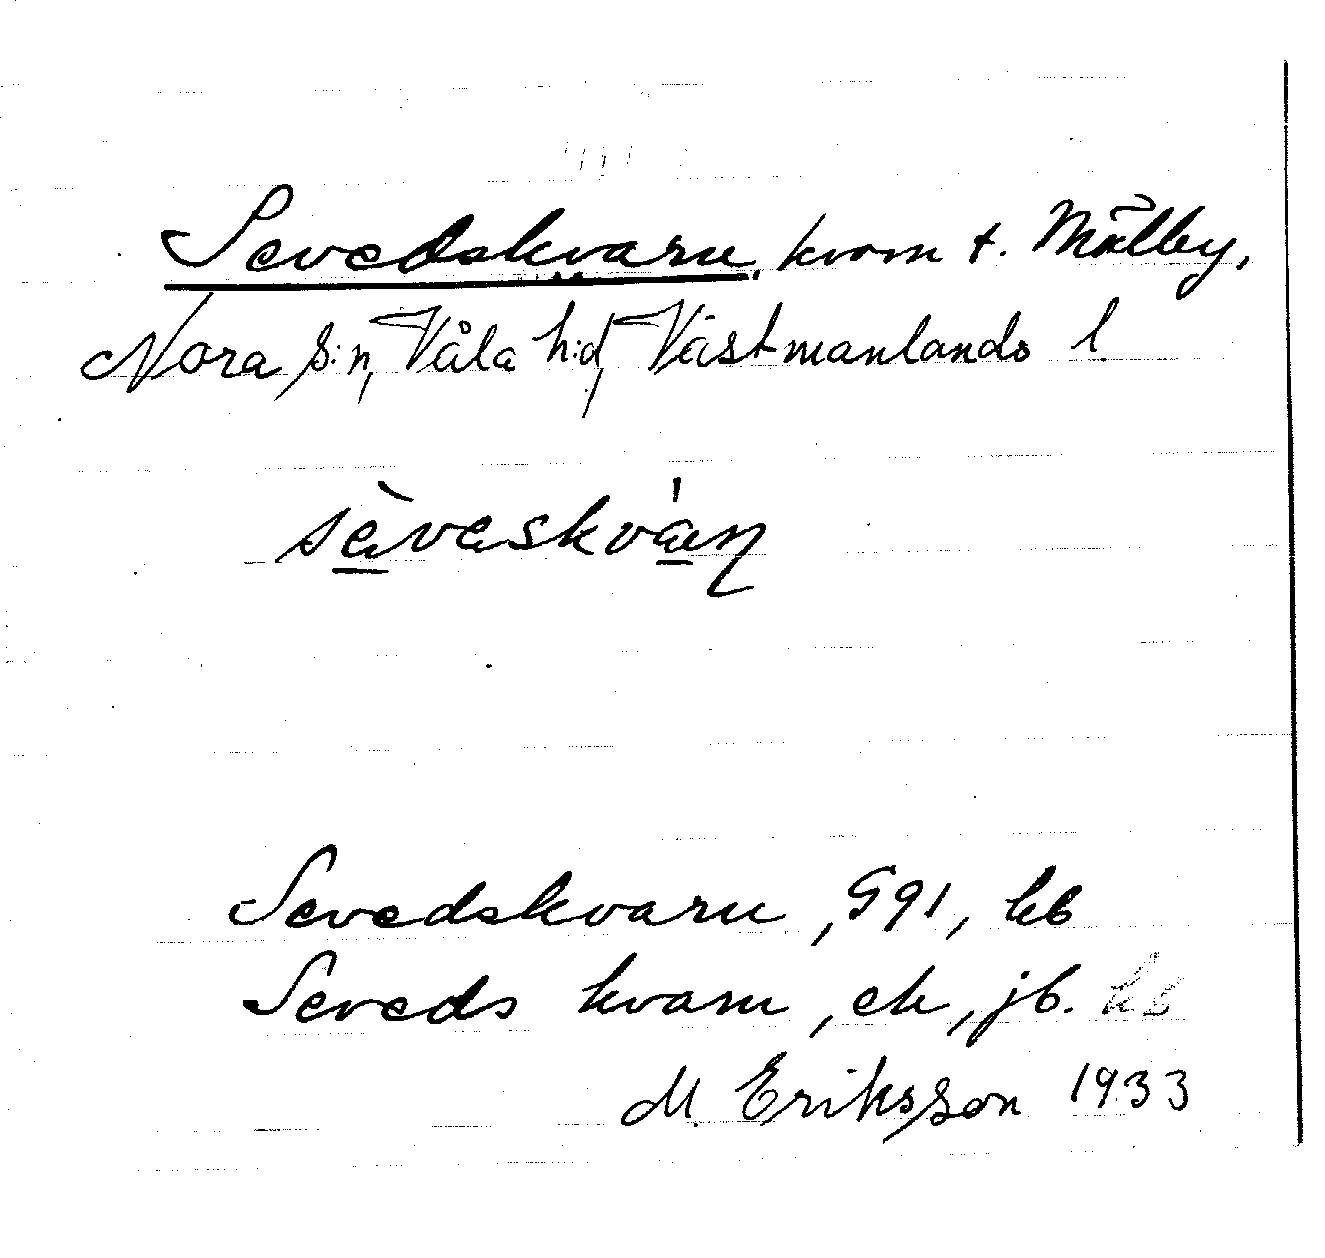 Sevedskvarn, kvarn t. Mälby,
Nora s:n, Våla h:d, Västmanlands l
sèvaskváṇ
Sevedskvarn, G91, kb
Seveds kvarn, ek, jb. kb
M. Eriksson 1933